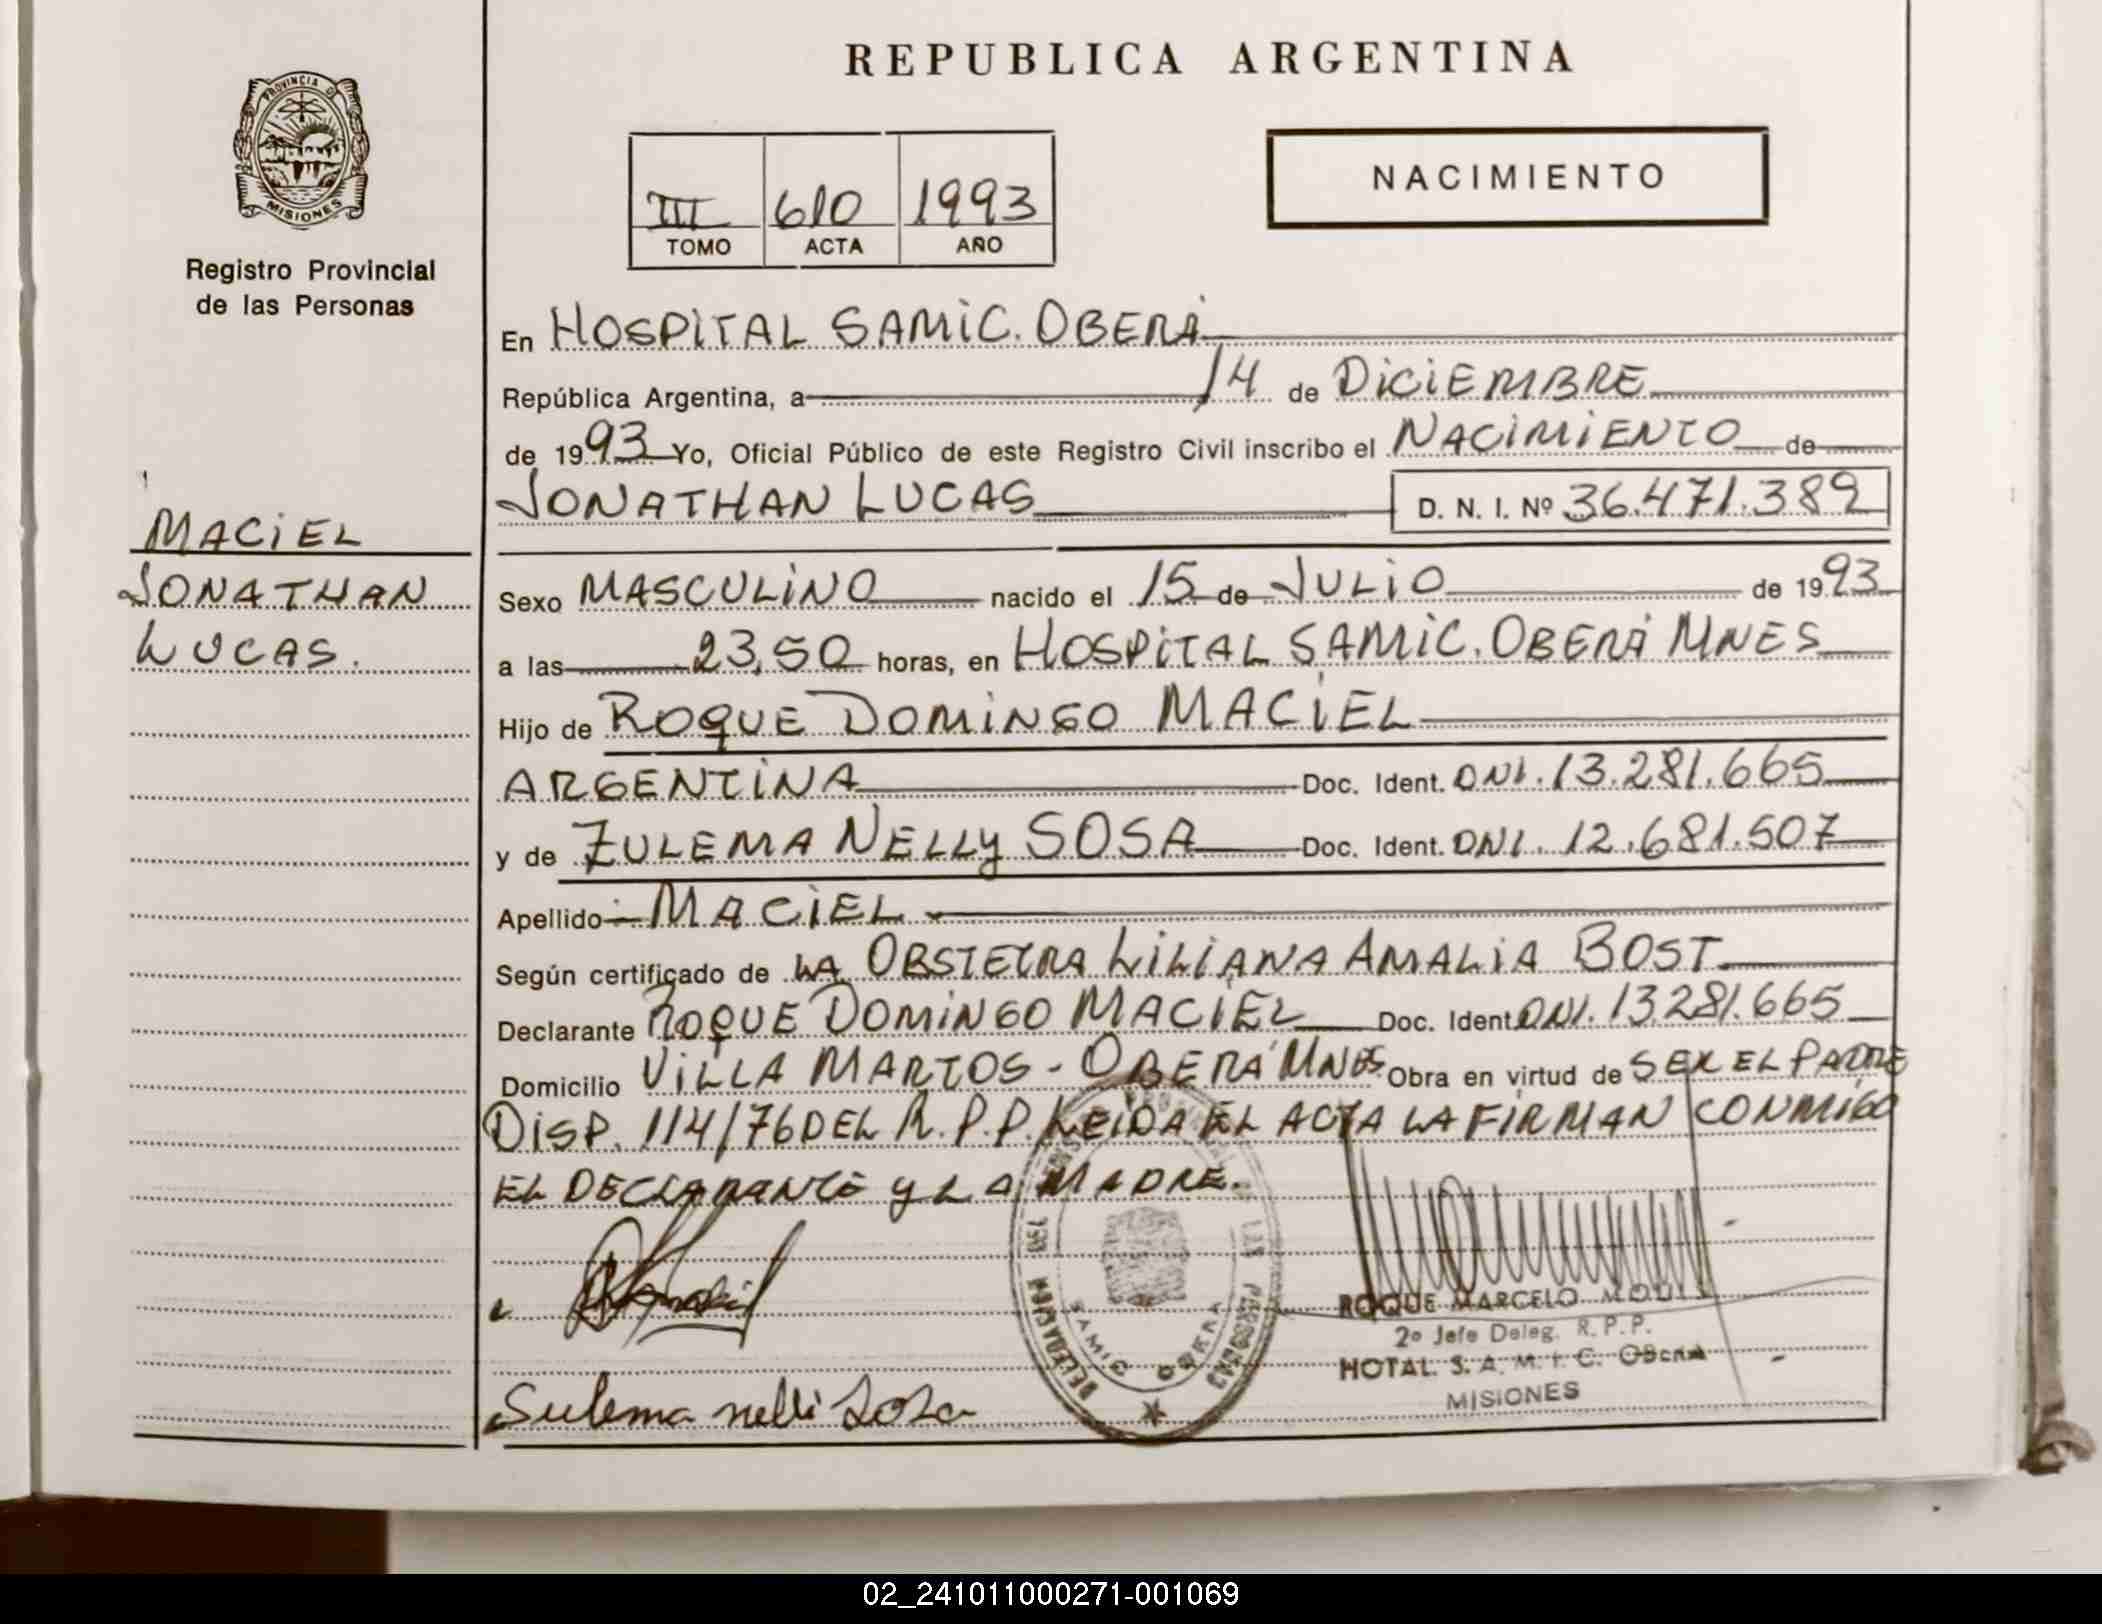 REPUBLICA ARGENTINA
PROVINCIA D
MISIONES
Registro Provincial
de las Personas
III 610 1993
TOMO ACTA AÑO
NACIMIENTO
En HOSPITAL SAMIC. OBERÁ
República Argentina, a 14 de DICIEMBRE
de 1993 Yo, Oficial Público de este Registro Civil inscribo el NACIMIENTO de
JONATHAN LUCAS D. N. I. Nº 36.471.389
MACIEL
JONATHAN
LUCAS.
Sexo MASCULINO nacido el 15 de JULIO de 1993
a las 23,50 horas, en HOSPITAL SAMIC. OBERÁ MNES
Hijo de ROQUE DOMINGO MACIEL
ARGENTINA Doc. Ident. DNI. 13.281.665
y de ZULEMA NELLY SOSA Doc. Ident. DNI. 12.681.507
Apellido MACIEL
Según certificado de LA OBSTETRA LILIANA AMALIA BOST
Declarante ROQUE DOMINGO MACIEL Doc. Ident DNI. 13.281.665
Domicilio VILLA MARTOS - OBERÁ MNES Obra en virtud de SER EL PADRE
DISP. 114/76 DEL R.P.P. LEIDA EL ACTA LA FIRMAN CONMIGO
EL DECLARANTE Y LA MADRE.
DELEGACION DEL REGISTRO PROVINCIAL DE LAS PERSONAS
SAMIC OBERA
ROQUE MARCELO
2º Jefe Deleg. R.P.P.
HOTAL. S. A. M. I. C. OBERA
MISIONES
Sulema nelli Sosa
02_241011000271-001069